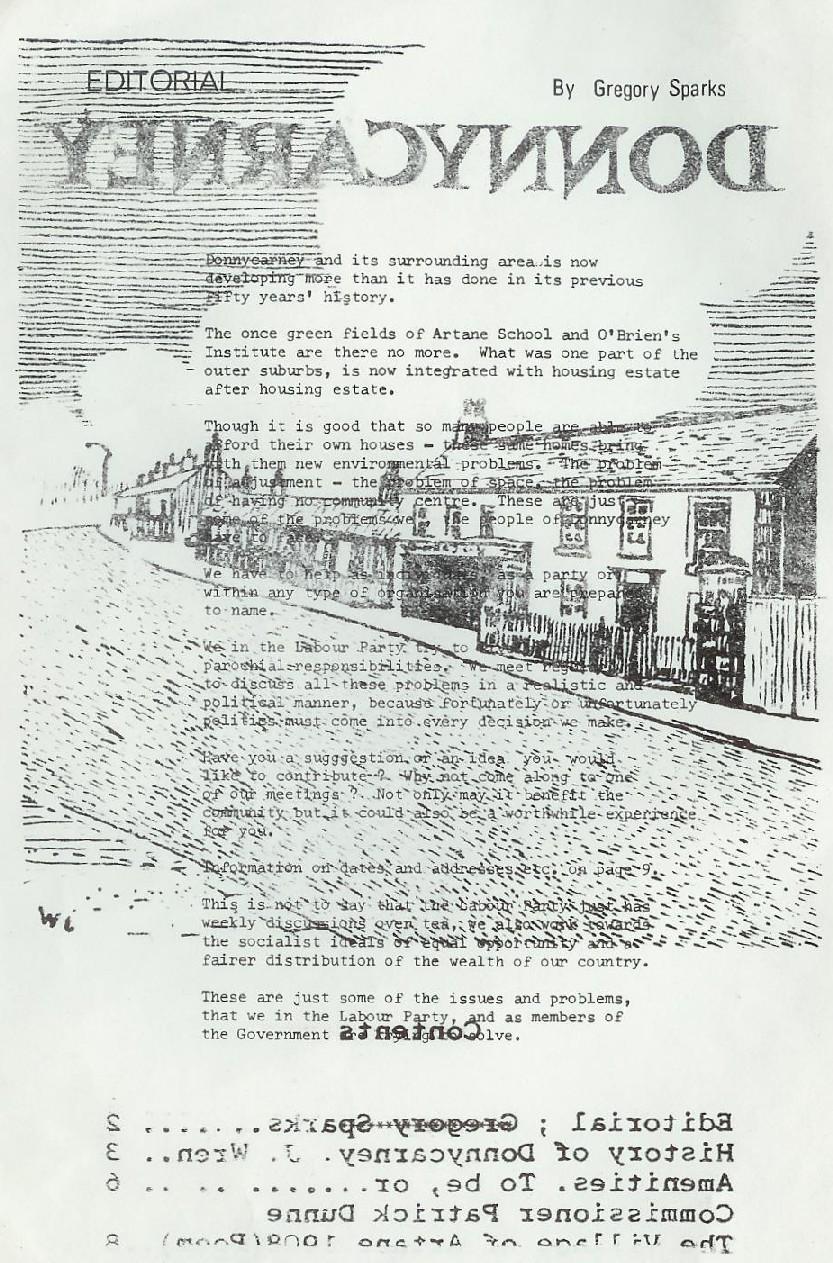 EDITORIAL
By Gregory Sparks
DONNYCARNEY
Donnycarney and its surrounding area is now
developing more than it has done in its previous
fifty years' history.
The once green fields of Artane School and O'Brien's
Institute are there no more. What was one part of the
outer suburbs, is now integrated with housing estate
after housing estate.
Though it is good that so many people are able to
afford their own houses - these same homes bring
with them new environmental problems. The problem
of adjusment - the problem of space, the problem
of having no community centre. These are just
some of the problems we, the people of Donnycarney
have to face.
We have to help as individuals, as a party or
within any type of organisation you are prepared
to name.
We in the Labour Party try to
parochial responsibilities. We meet
to discuss all these problems in a realistic and
political manner, because fortunately or unfortunately
politics must come into every decision we make.
Have you a sugggestion or an idea you would
like to contribute ? Why not come along to one
of our meetings ? Not only may it benefit the
community but it could also be a worthwhile experience
for you.
Information on dates and addresses etc. on page 9.
This is not to say that the Labour Party just has
weekly discussions over tea, we also work towards
the socialist ideals of equal opportunity and a
fairer distribution of the wealth of our country.
These are just some of the issues and problems,
that we in the Labour Party, and as members of
the Government are trying to solve.
Contents
Editorial ; Gregory Sparks....... 2
History of Donnycarney. J. Wren.. 3
Amenities. To be, or............ 6
Commissioner Patrick Dunne
The Village of Artane 1909(Poem) 8